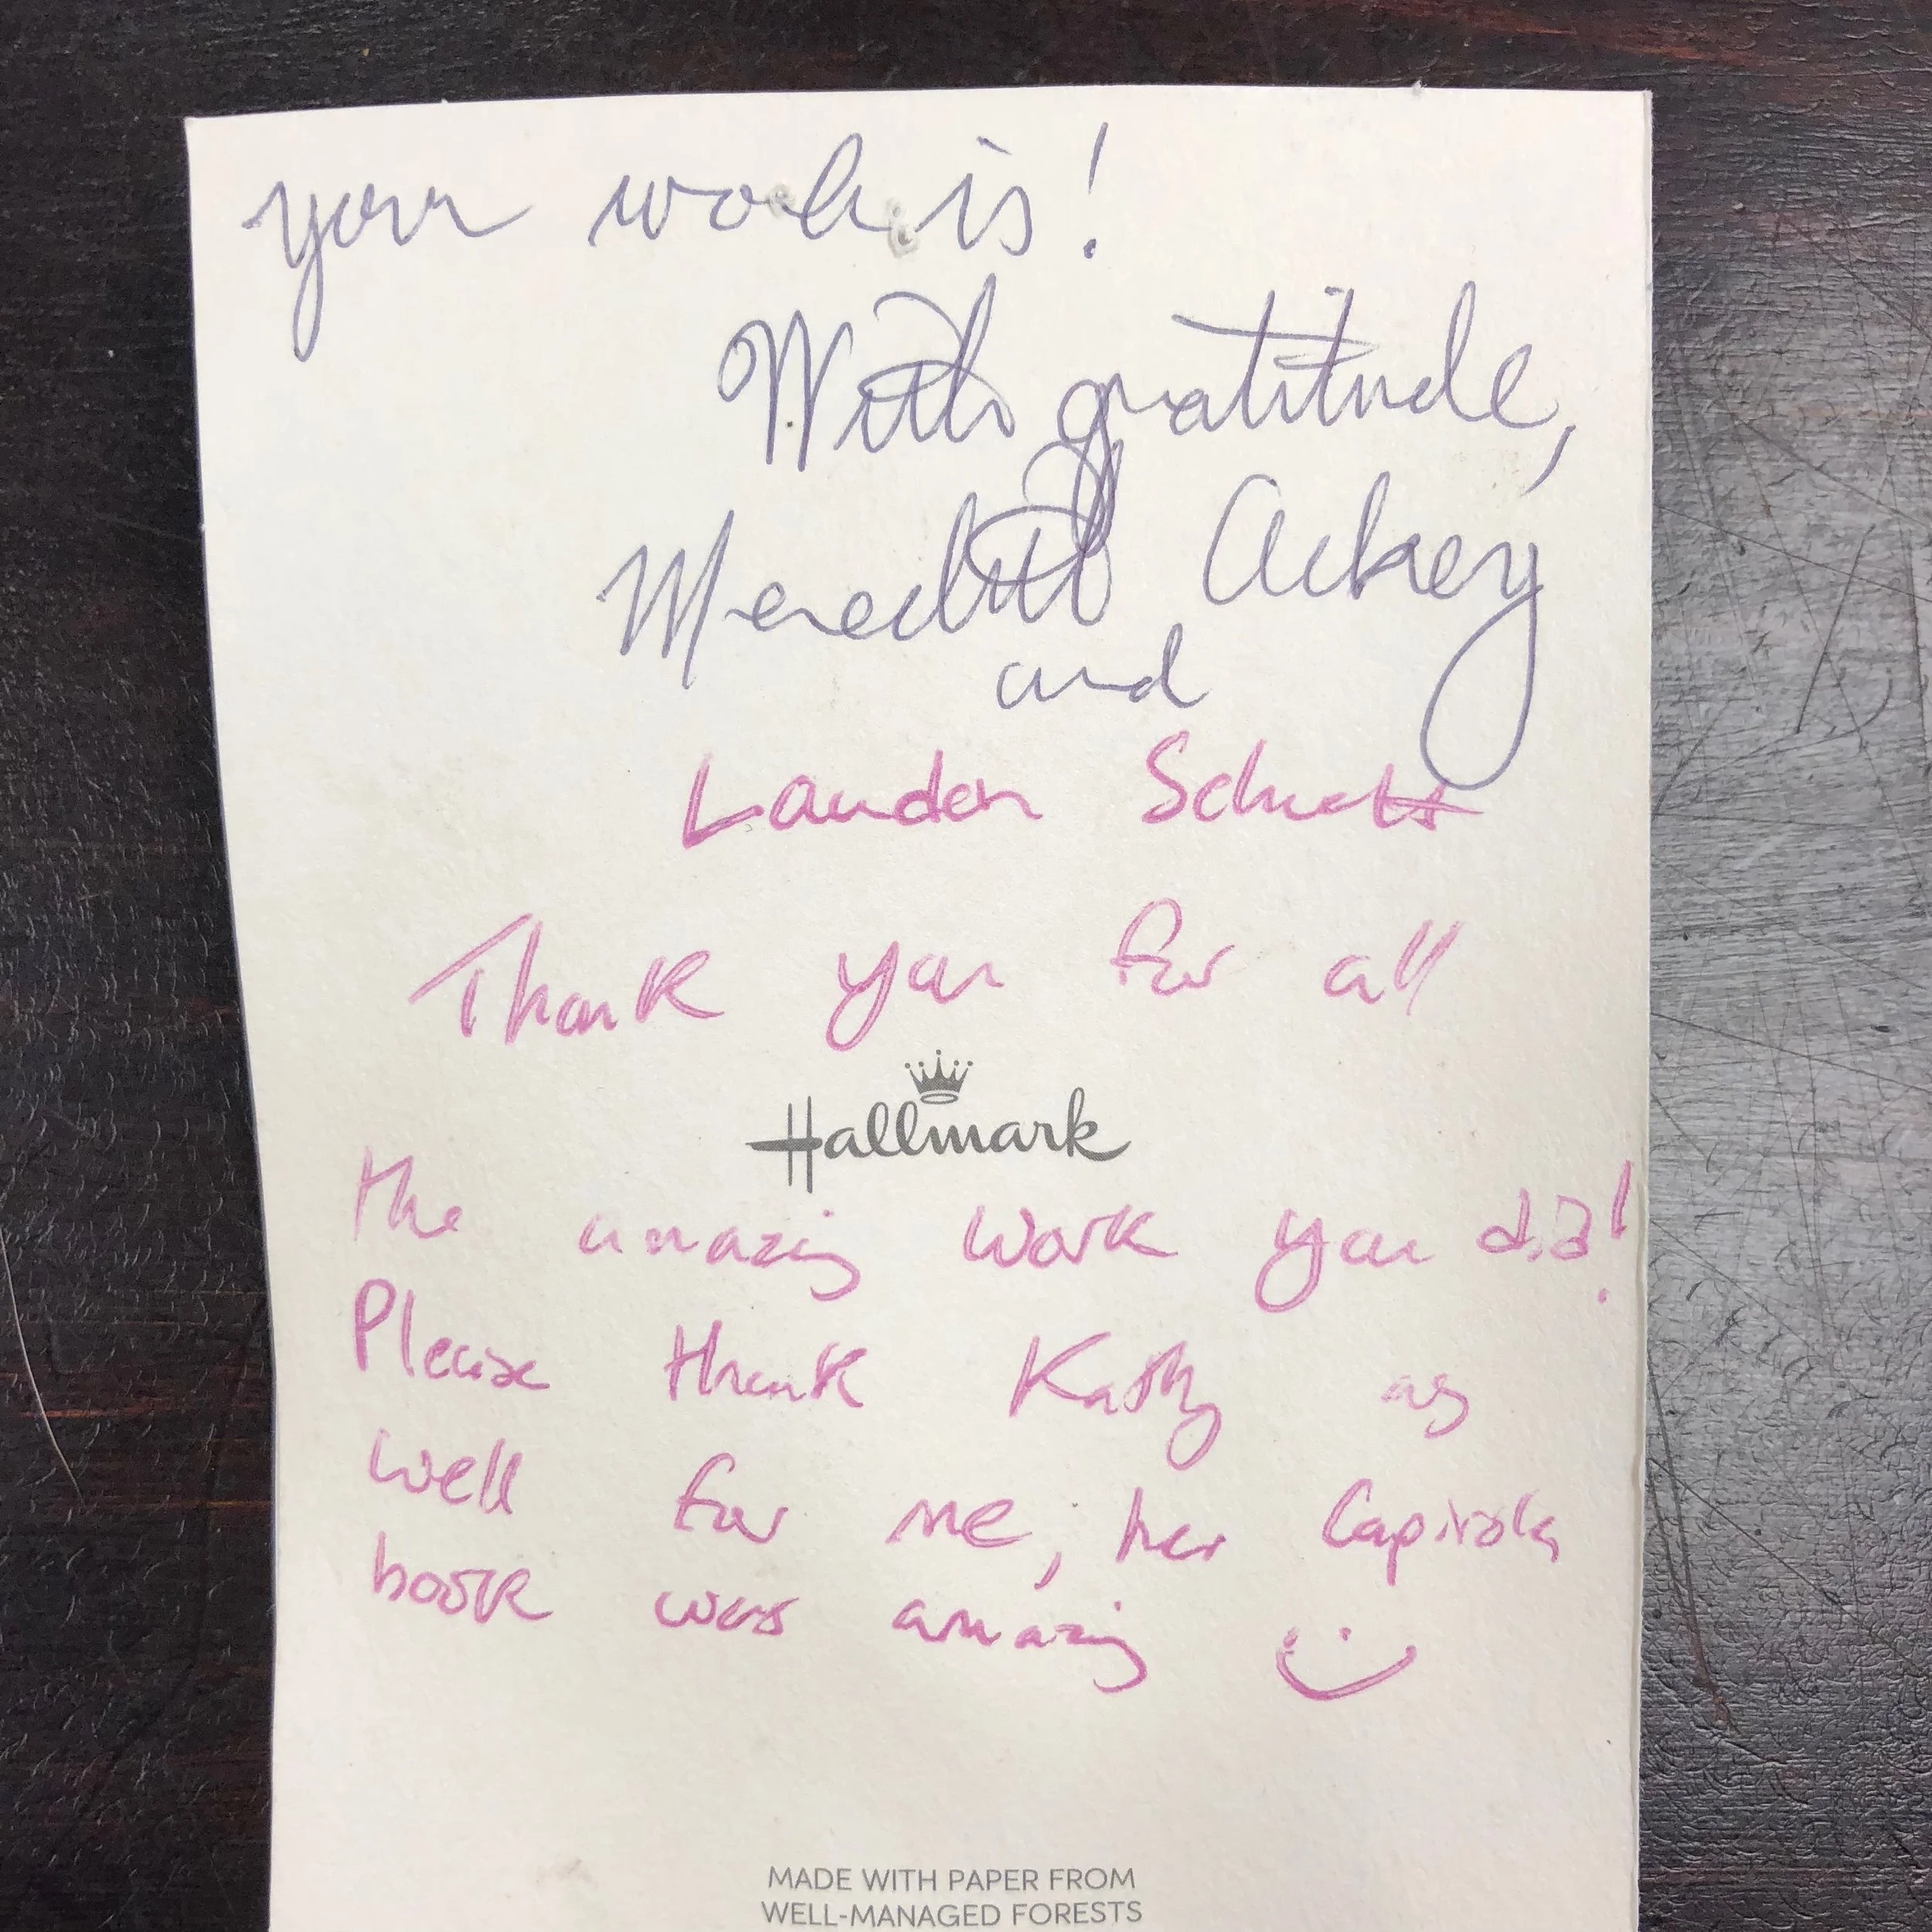 your work is!
With gratitude,
Meredith Ackey
and
Landon
Thank you for all
Hallmark
the amazing work you did!
Please thank Kathy as
well for me, her Capitola
book was amazing
MADE WITH PAPER FROM
WELL-MANAGED FORESTS